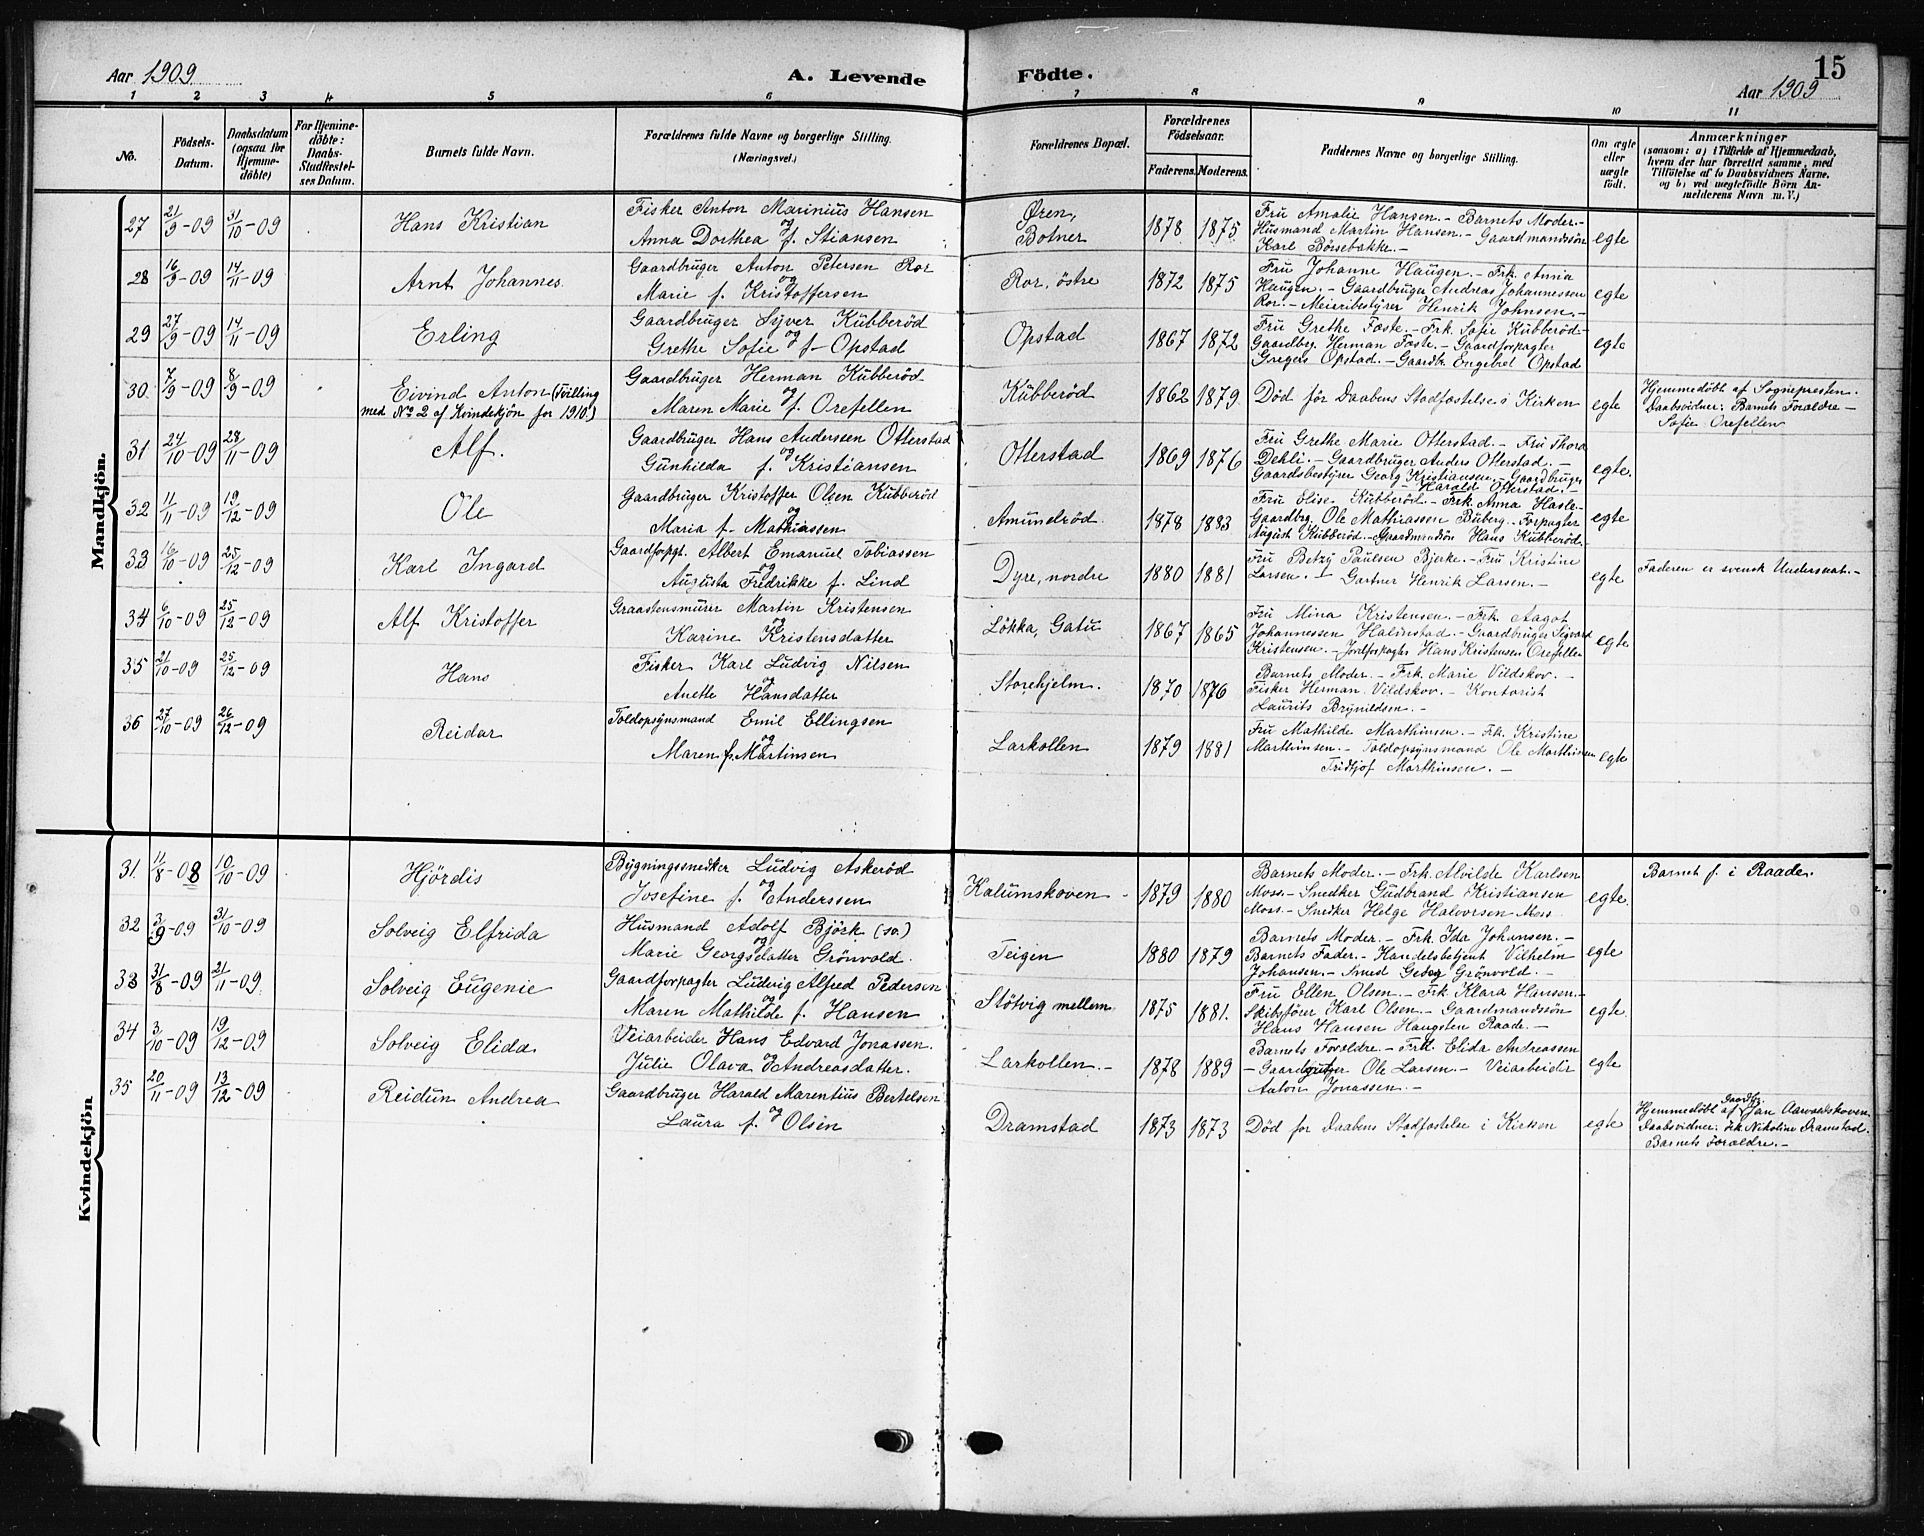 Aar 1909
A. Levende
Födte.
15
Aar 1909
1 2 3 4 5 6 7 8 9 10 11
No.
Födsels-
Datum.
Daabsdatum
(ogsaa for
Hjemme-
döbte)
For Hjemme-
döbte:
Daabs-
Stadfæstel-
ses Datum.
Barnets fulde Navn.
Forældrenes fulde Navne og borgerlige Stilling.
(Næringsvei.)
Forældrenes Bopæl.
Forældrenes
Födselsaar.
Faderens. Moderens.
Faddernes Navne og borgerlige Stilling.
Om ægte
eller
uægte
födt.
Anmærkninger
(saasom: a) i Tilfælde af Hjemmedaab,
hvem der har forrettet samme, med
Tilföielse af to Daabsvidners Navne.
og b) ved uægtefödte Börn An-
melderens Navn m. V.)
Mandkjön.
27 21/9-09 31/10-09 Hans Kristian
Fisker Anton Marinius Hansen
og
Anna Dorthea f. Stiansen
Øren,
Botner
1878 1875
Fru Amalie Hansen. - Barnets Moder. -
Husmand Martin Hansen. - Gaardmandssön
Karl Börsebakke. -
egte
28 16/9-09 14/11-09 Arnt Johannes
Gaardbruger Anton Petersen Ror
og
Marie f. Kristoffersen
Ror, östre
1872 1875
Fru Johanne Haugen. - Frk. Anna
Haugen. - Gaardbruger Andreas Johannessen
Ror. - Meieribestyrer Henrik Johnsen. -
egte
29 27/9-09 14/11-09 Erling
Gaardbruger Syver Kubberöd
og
Grethe Sofie f- Opstad
Opstad
1867 1872
Fru Grethe Foste. - Frk. Sofie Kubberöd-
Gaardbrg. Herman Foste. - Gaardforpagter
Gregers Opstad. - Gaardb. Engebret Opstad
egte
30. 7/9-09 8/9-09 Eivind Anton (Tvilling
med No 2 af Kvindekjön for 1910.)
Gaardbruger Herman Kubberöd-
og
Maren Marie f. Orefellen
Kubberöd
1862 1879
Död för Daabens Stadfæstelse i Kirken
egte
Hjemmedöbt af Sognepresten.
Daabsvidner: Barnets Foraldre -
Sofie Orefellen
31 24/10-09 28/11-09 Alf.
Gaardbruger Hans Anderssen Otterstad
og
Gunhilda f. Kristiansen
Otterstad
1869 1876
Fru Grethe Marie Otterstad. - Fru Thora
Dehli. - Gaardbruger Anders Otterstad. -
Gaardsbestyrer Georg Kristiansen. - Gaardbruger
Harald Otterstad. -
egte.
32 11/11-09 19/12-09 Ole
Gaardbruger Kristoffer Olsen Kubberöd
og
Maria f. Mathiassen
Amundröd.
1878 1883
Fru Elise Kubberöd. - Frk. Anna Hasle-
Gaardbrg. Ole Mathiassen Buberg. - Forpagter
August Kubberöd. - Gaardmandssön Hans Kubberöd.
egte
33 16/10-09 25/12-09 Karl Ingard
Gaardforpgt. Albert Emanuel Tobiassen
og
Augusta Fredrikke f. Lind
Dyre, nordre
1880 1881
Fru Betzy Paulsen Bjerke. - Fru Kristine
Larsen. - Gartner Henrik Larsen. -
egte
Faderen er svensk Undersaat. -
34 6/10-09 25/12-09 Alf Kristoffer
Graastensmurer Martin Kristensen
og
Karine Kristensdatter
Lökka, Gatu
1867 1865
Fru Mina Kristensen. - Frk. Aagot
Johannessen Halmstad. - Gaardbruger Sigvard
Kristensen. - Jordforpagter Hans Kristensen Orefellen
egte
35 21/10-09 25/12-09 Hans
Fisker Karl Ludvig Nilsen
og
Anette Hansdatter
Storehjelm.
1870 1876
Barnets Moder. - Frk. Marie Vildskov. -
Fisker Herman Vildskov. - Kontorist
Laurits Brynildsen. -
36 27/10-09 26/12-09 Reidar
Toldopsynsmand Emil Ellingsen
og
Maren f. Martinsen
Larkollen
1879 1881
Fru Mathilde Marthinsen. - Frk. Kristine
Marthinsen. - Toldopsynsmand Ole Marthinsen
Fridtjof Marthinsen. -
egte
Kvindekjön
31. 11/8-08 10/10-09 Hjördis
Bygningssnedker Ludvig Askeröd
og
Josefine f. Anderssen
Kalumskoven
1879 1880
Barnets Moder. - Frk. Alvilde Karlsen
Moss. - Snedker Gudbrand Kristiansen
Moss. - Snedker Helge Halvorsen Moss
egte.
Barnet f. i Raade.
32 3/9-09 31/10-09 Solveig Elfrida
Husmand Adolf Björk (sv.)
og
Marie Georgsdatter Grönvold.
Teigen
1880 1879
Barnets Moder. - Frk. Ida Johansen. -
Barnets Fader. - Handelsbetjent Vilhelm
Johansen. - Smed Georg Grönvold. -
egte
33 31/8-09 21/11-09 Solveig Eugenie
Gaardforpagter Ludvig Alfred Pedersen
og
Maren Mathilde f. Hansen
Stötvig mellem
1875 1881.
Fru Ellen Olsen. - Frk. Klara Hansen. -
Skibsförer Karl Olsen. - Gaardmandssön
Hans Hansen Haugsten Raade. -
egte.
34 3/10-09 19/12-09 Solveig Elida
Veiarbeider Hans Edvard Jonassen.
og
Julie Olava Andreasdatter.
Larkollen. -
1878 1889
Barnets Foraldre. - Frk. Elida Andreassen
- Gaardbruger Ole Larsen. - Veiarbeider
Anton Jonassen. -
egte
35 20/11-09 13/12-09 Reidun Andrea
Gaardbruger Harald Marentius Bertelsen
og
Laura f. Olsen
Dramstad
1873 1873
Död for Daabens Stadfæstelse i Kirken
egte
Gaardbr.
Hjemmedöbt af Jan Aarvoldskoven.
Daabsvidner: Frk. Nikoline Dramstad.
Barnets Foraldre. -